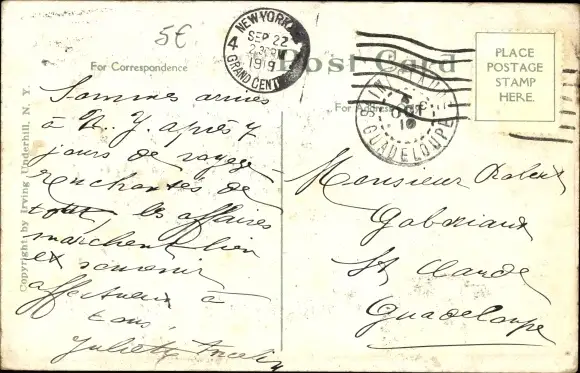 5€
NEW YORK
SEP 22
1919
GRAND CENT
4
Post Card
For Correspondence
For Address
PLACE
POSTAGE
STAMP
HERE.
GUADELOUPE
Copyright by Irving Underhill, N. Y.
Sommes arrivés
à N. Y. après 7
jours de voyage
Enchantés de
tout, les affaires
marchent bien
et souvenir
affectueux à
tous,
Juliette
Monsieur Robert
St Claude
Guadeloupe